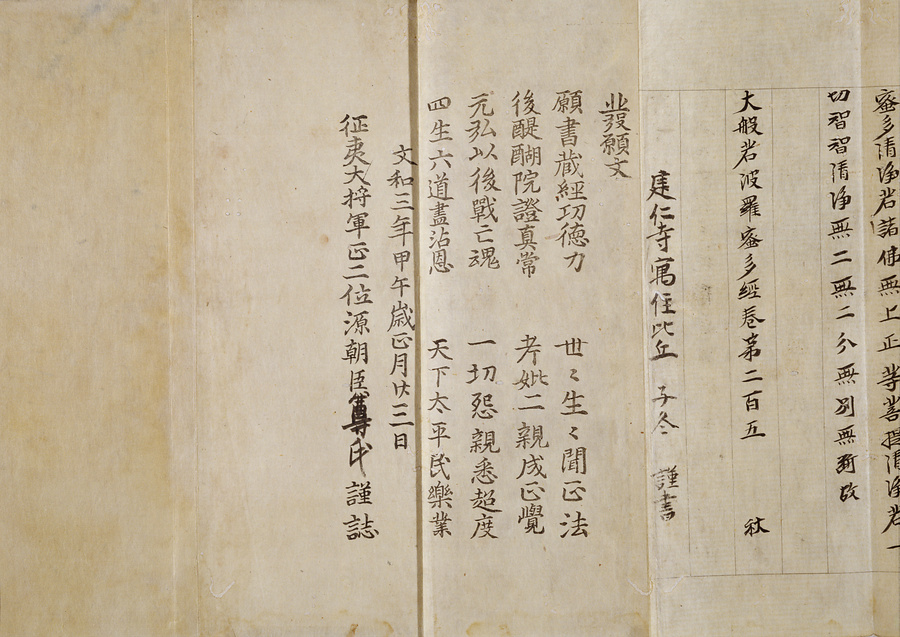 蜜多清淨若諸佛無上正等菩提清淨若一
切智智清淨無二無二分無別無斷故
大般若波羅蜜多經卷第二百五 秋
建仁寺寓住比丘 子冬 謹書
發願文
願書蔵經功德力 世〻生〻聞正法
後醍醐院證真常 考妣二親成正覺
元弘以後戰亡魂 一切怨親悉超度
四生六道盡沾恩 天下太平民樂業
文和三年甲午歳正月廿三日
征夷大将軍正二位源朝臣尊氏謹誌